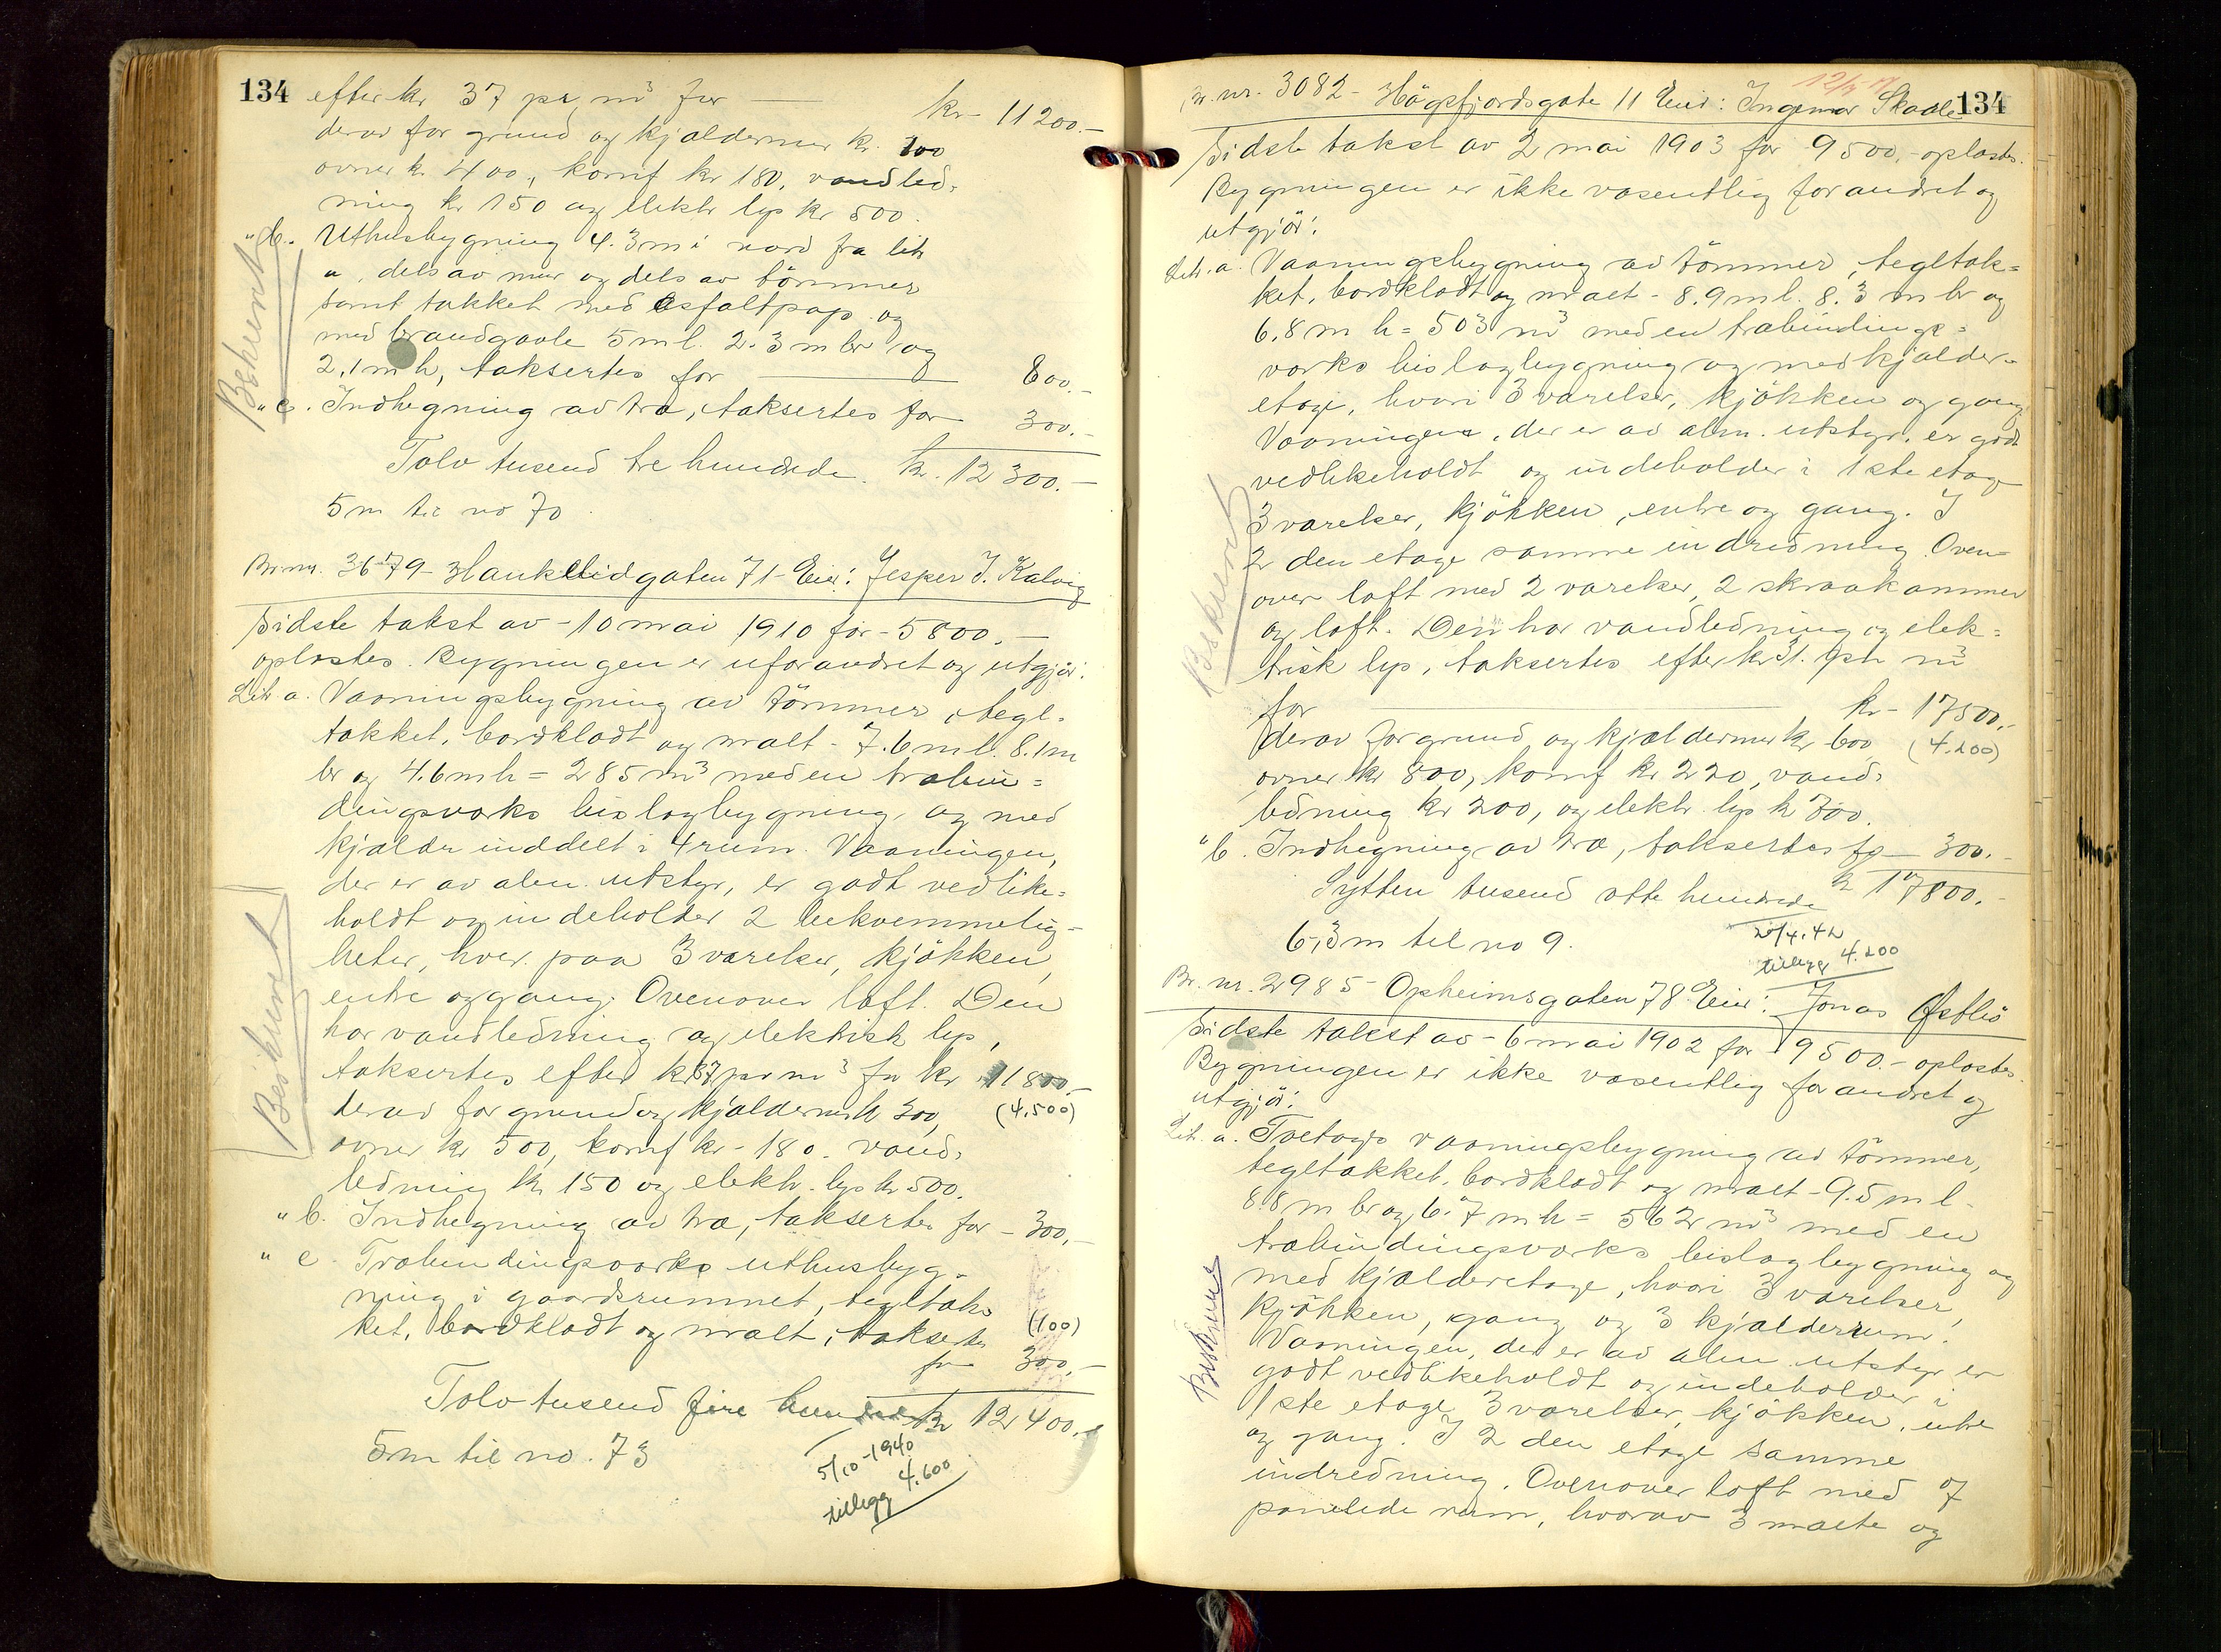 134
efter kr 37 pr m³ for — kr 11200.—
derav for grund og kjældermur kr.
ovner kr 400, komf kr 180, vandled=
ning kr 150 og elektr lys kr 500.
" b. Uthusbygning 4.3 m i nord fra litr
a, dels av mur og dels av tömmer
samt takket med asfaltpap og
med brandgavle 5 m l. 2.3 m br og
2,1 m h, taksertes for — 800.—
" c. Indhegning av træ, taksertes for — 300.—
Tolv tusend tre hundrede. kr. 12300.—
5 m til no 70.
Bekjent
Br. nr. 3679 - Haukelidgaten 71 - Eier: Jesper J. Kalvig
Sidste takst av - 10 mai 1910 for - 5800.—
oplæstes. Bygningen er uforandret og utgjör:
Litr a. Vaaningsbygning av tömmer, tegl=
takket, bordklædt og malt - 7.6 m l. 8.1 m
br og 4.6 m h = 285 m³ med en træbin=
dingsværks bislagbygning, og med
kjælder inddelt i 4 rum. Vaaningen,
der er av alm. utstyr, er godt vedlike=
holdt og indeholder 2 bekvemmelig=
heter, hver paa 3 værelser, kjökken,
entre og gang. Ovenover loft. Den
har vandledning og elektrisk lys,
taksertes efter kr 37 pr m³ for kr 11800.—
derav for grund og kjældermur kr 300, (4.500)
ovner kr 500, komf kr - 180. vand=
ledning kr 150 og elektr. lys kr 500.
" b. Indhegning av træ, taksertes for - 300.—
" c. Træbindingsværks uthusbyg=
ning i gaardsrummet, tegltak=
ket, bordklædt og malt, taksertes (100)
for 300.—
Tolv tusend fire hundrede kr 12400.—
5 m til no. 73
5/10-1940
tillegg 4.600
Beskrevet
134
12/5-17
Br. nr. 3082 - Högsfjordsgate 11 Eier: Ingemar Skadle
Sidste takst av 2 mai 1903 for 9500.- oplæstes.
Bygningen er ikke væsentlig forandret og
utgjör:
Litr. a. Vaaningsbygning av tömmer, tegltak=
ket, bordklædt og malt - 8.9 m l. 8.3 m br og
6,8 m h = 503 m³ med en træbindings=
værks bislagbygning og med kjælder=
etage, hvori 3 værelser, kjökken og gang.
Vaaningen, der er av alm. utstyr, er godt
vedlikeholdt og indeholder i 1ste etage
3 værelser, kjökken, entre og gang. I
2 den etage samme indredning. Oven=
over loft med 2 værelser, 2 skraakammer
og loft. Den har vandledning og elek=
trisk lys, taksertes efter kr 31. pr m³
for — kr - 17500.—
derav for grund og kjældermur kr 600 (4.200)
ovner kr 800, komf kr 220, vand=
ledning kr 200, og elektr. lys kr 700.
" b. Indhegning av træ, taksertes for — 300.—
Sytten tusend otte hundrede kr 17800.—
6,3 m til no 9.
20/4.42
tillegg 4.200
Beskrevet
Br. nr. 2985 - Opheimsgaten 78 Eier: Jonas Østlid
Sidste takst av - 6 mai 1902 for 9500.- oplæstes.
Bygningen er ikke væsentlig forandret og
utgjör:
Litr. a. Toetages vaaningsbygning av tömmer,
tegltakket, bordklædt og malt - 9.5 m l.
8.8 m br og 6.7 m h = 562 m³ med en
træbindingsværks bislagbygning og
med kjælderetage, hvori 3 værelser,
kjökken, gang og 3 kjælderrum.
Vaaningen, der er av alm utstyr er
godt vedlikeholdt og indeholder i
1ste etage 3 værelser, kjökken, entre
og gang. I 2 den etage samme
indredning. Ovenover loft med 7
panelede rum, hvorav 3 malte og
Beskrevet